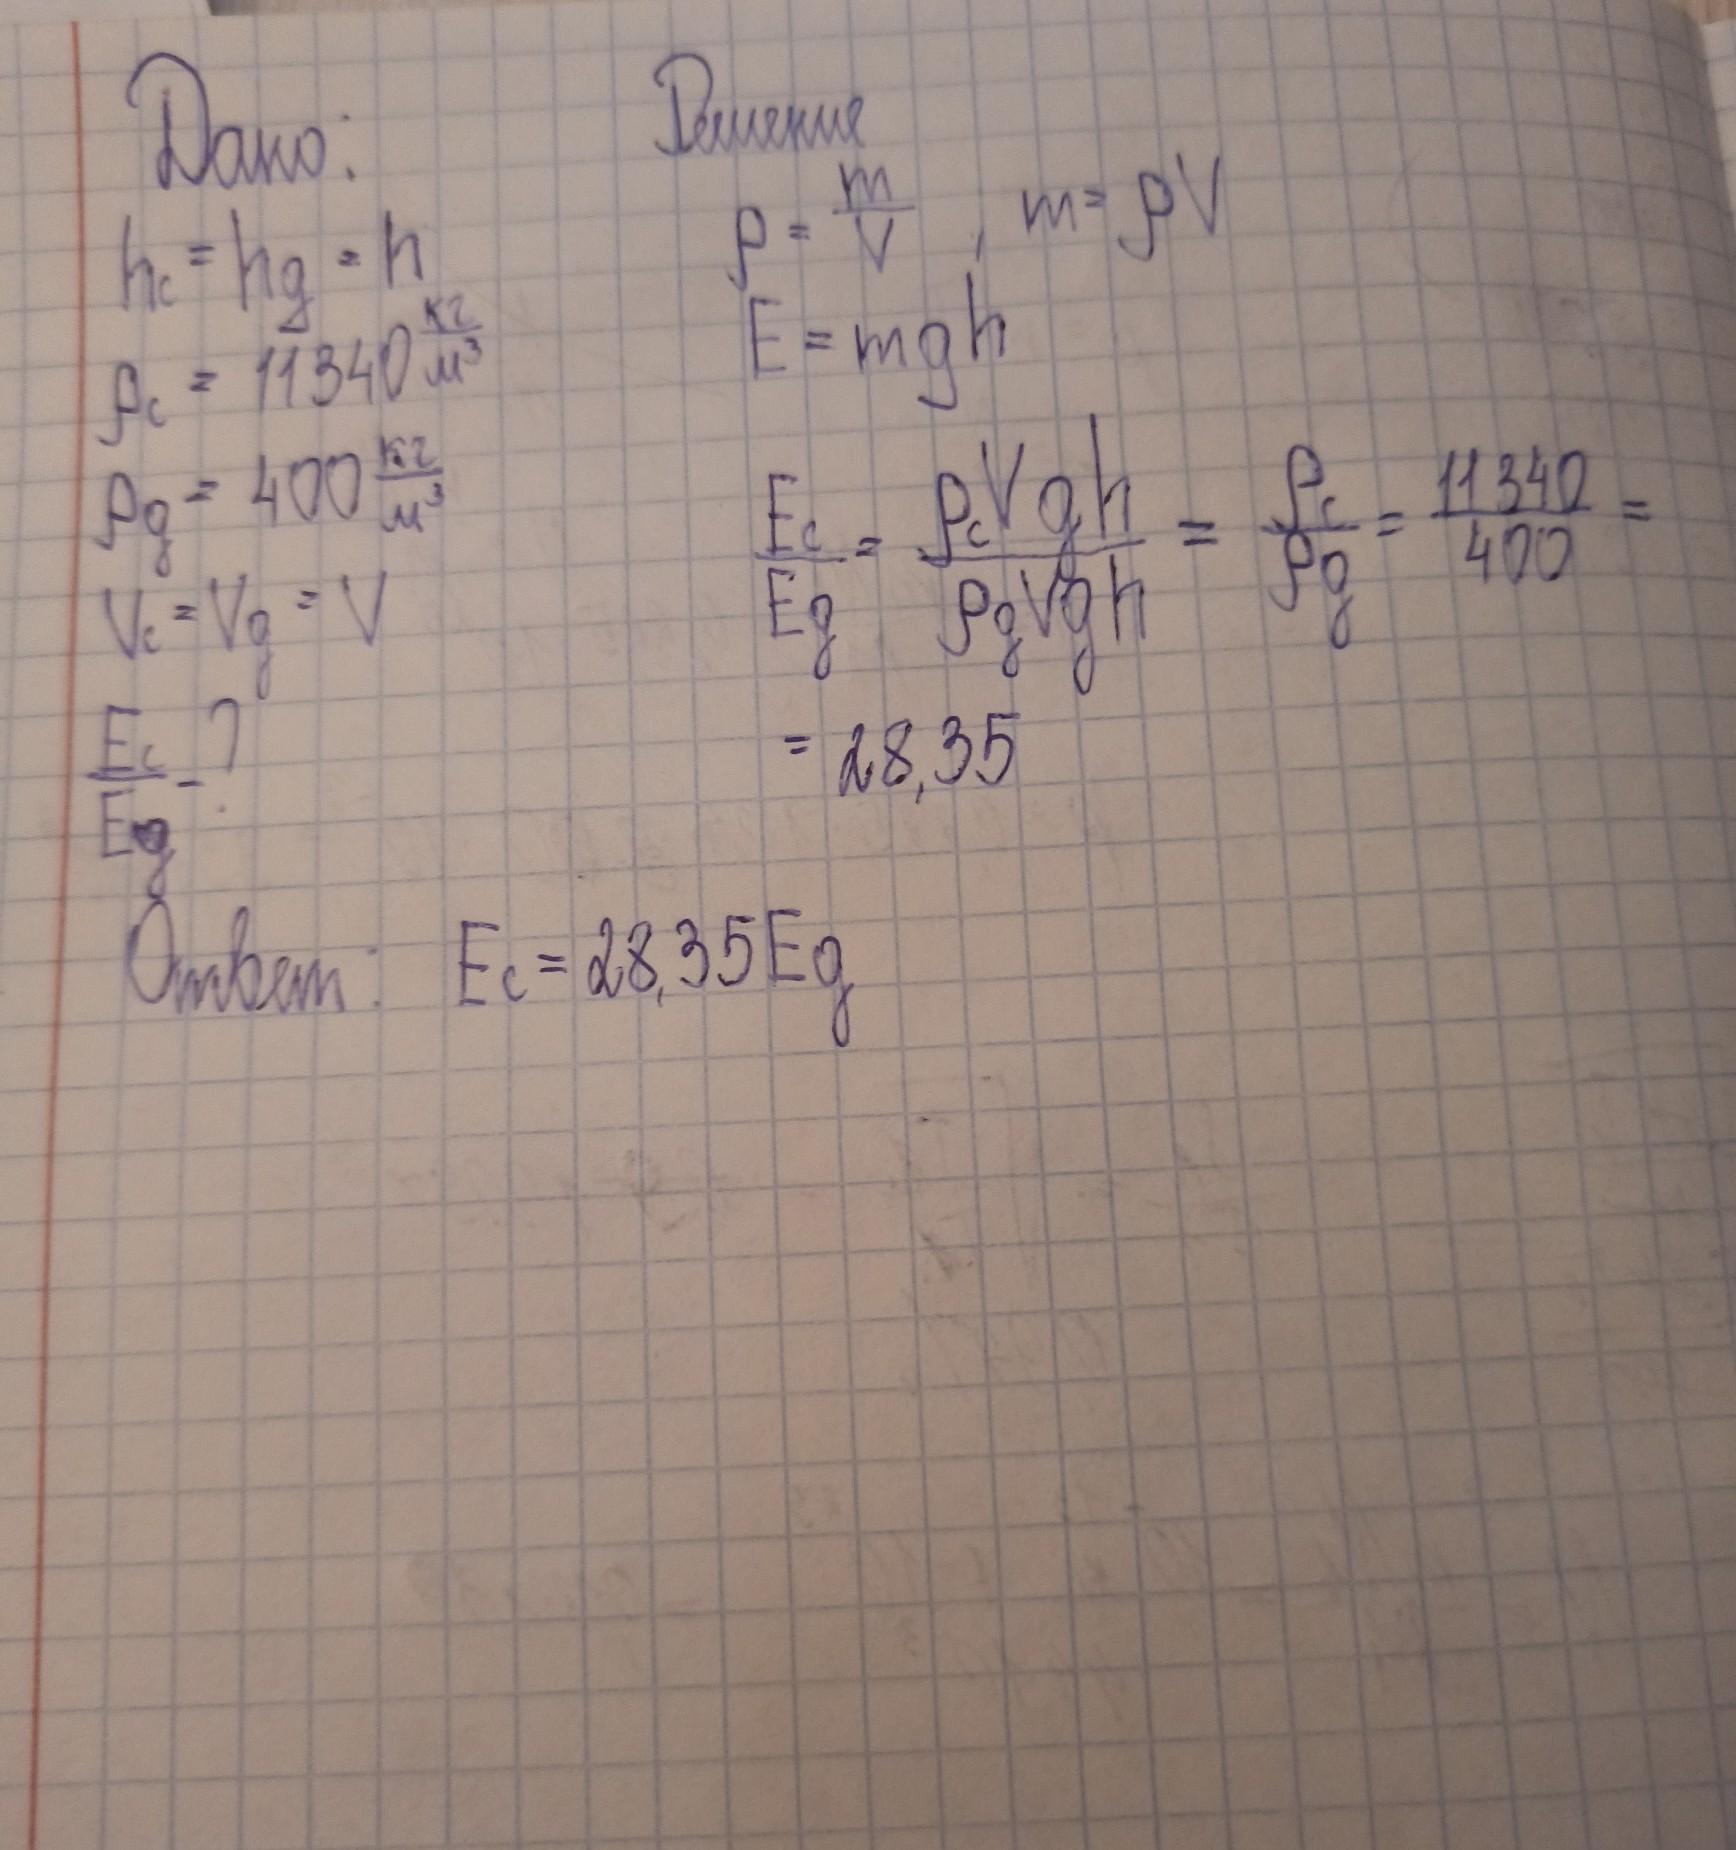 Дано:
hс = hg = h
ρс = 11340 кг/м³
ρg = 400 кг/м³
Vс = Vg = V
Eс/Eg - ?
Решение
ρ = m/V , m = ρV
E = mgh
Eс/Eg = ρсVgh/ρgVgh = ρс/ρg = 11340/400 =
= 28,35
Ответ: Eс = 28,35Eg